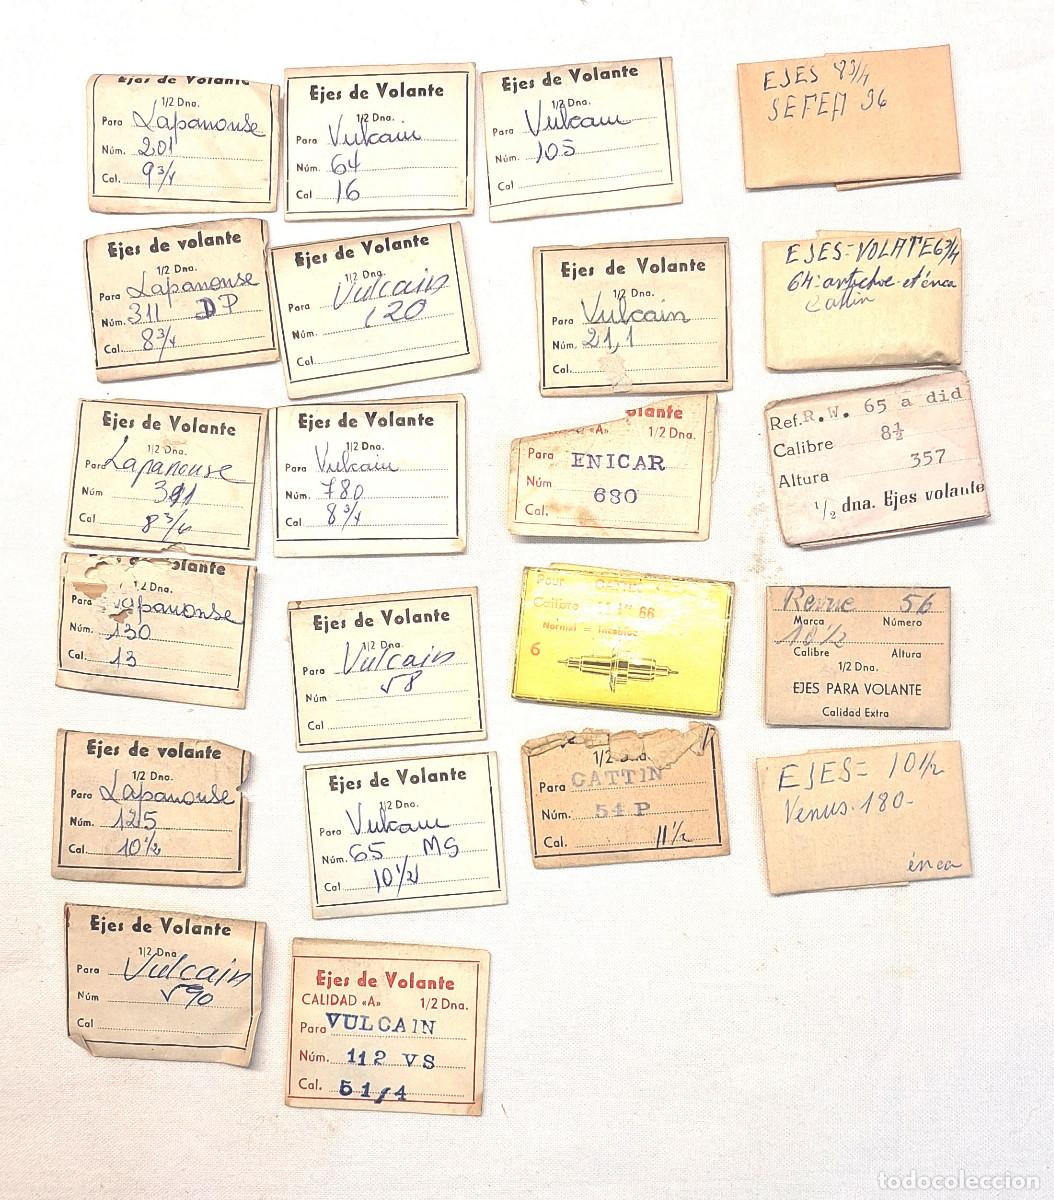 Ejes de Volante
1/2 Dna.
Para Lapanouse
Núm. 201
Cal. 9 3/4
Ejes de Volante
1/2 Dna.
Para Vulcain
Núm. 64
Cal 16
Ejes de Volante
1/2 Dna.
Para Vulcain
Núm. 105
Cal
EJES 8 3/4
SEFEA 36
Ejes de volante
1/2 Dna.
Para Lapanouse
Núm. 311 DP
Cal. 8 3/4
Ejes de Volante
1/2 Dna.
Para Vulcain
Núm. 120
Cal.
Ejes de Volante
1/2 Dna.
Para Vulcain
Núm. 21,1
Cal.
EJES=VOLATE 6 3/4
64
Cattin
Ejes de Volante
1/2 Dna.
Para Lapanouse
Núm 311
Cal 8 3/4
Ejes de Volante
1/2 Dna.
Para Vulcain
Núm. 780
Cal 8 3/4
olante
«A» 1/2 Dna.
Para ENICAR
Núm 680
Cal.
Ref. R.W. 65 a did
Calibre 8½
Altura 357
1/2 dna. Ejes volante
olante
1/2 Dna.
Para Lapanouse
Núm. 130
Cal. 13
Ejes de Volante
1/2 Dna.
Para Vulcain
Núm V8
Cal
Pour
Calibre 66
Normal = Incabloc
6
Revue 56
Marca Número
10 1/2
Calibre Altura
1/2 Dna.
EJES PARA VOLANTE
Calidad Extra
Ejes de volante
1/2 Dna.
Para Lapanouse
Núm. 125
Cal. 10 1/2
Ejes de Volante
1/2 Dna.
Para Vulcain
Núm. 65 MS
Cal 10 1/2
1/2 Dna.
Para CATTIN
Núm. 54 P
Cal. 11 1/2
EJES= 10 1/2
Venus-180-
énca
Ejes de Volante
1/2 Dna.
Para Vulcain
Núm V90
Cal
Ejes de Volante
CALIDAD «A» 1/2 Dna.
Para VULCAIN
Núm. 112 VS
Cal. 51/4
todocoleccion